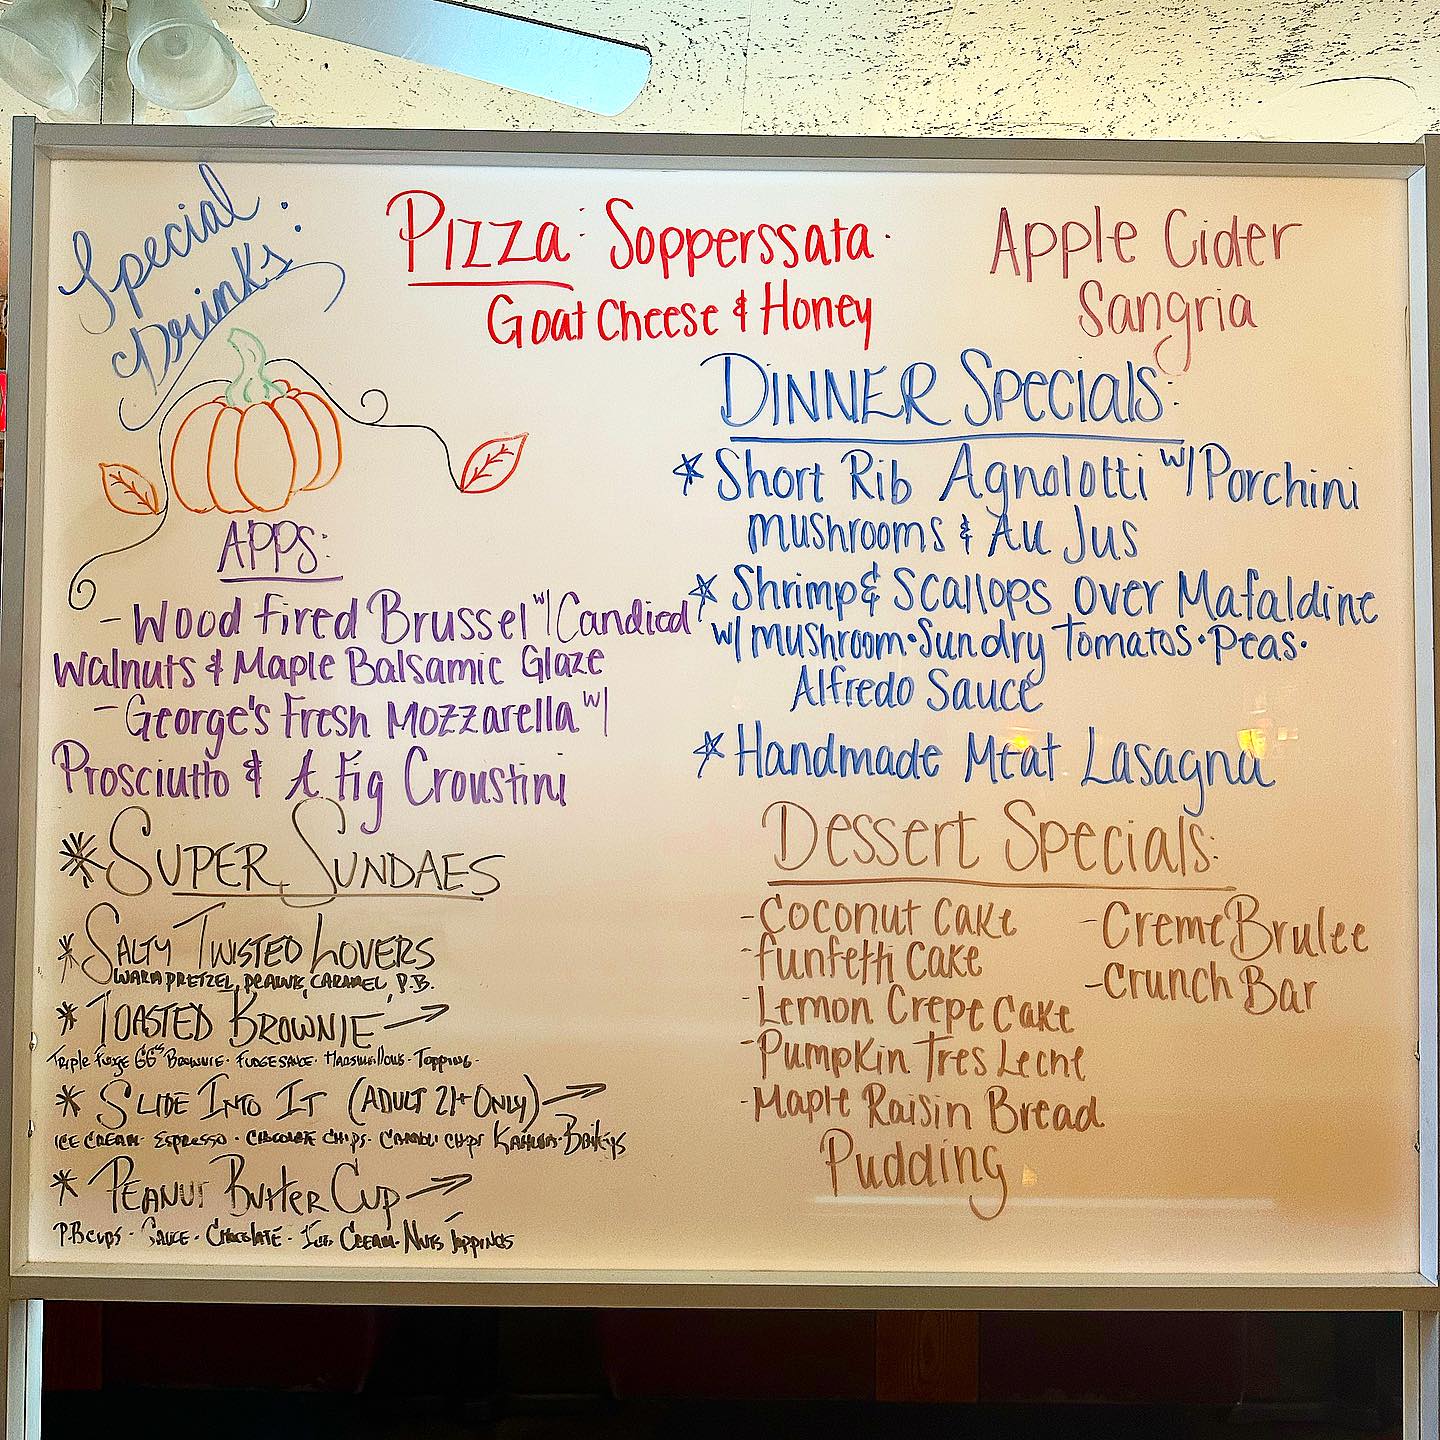 Special
Drinks:
Pizza: Sopperssata.
Goat Cheese & Honey
Apple Cider
Sangria
APPS:
- Wood fired Brussel w/ Candied
Walnuts & Maple Balsamic Glaze
- George's Fresh Mozzarella w/
Prosciutto & A Fig Croustini
DINNER Specials:
* Short Rib Agnolotti w/ Porchini
mushrooms & Au Jus
* Shrimp & Scallops over Mafaldine
w/ mushroom • Sundry Tomatos • Peas •
Alfredo Sauce
* Handmade Meat Lasagna
* SUPER SUNDAES
* SALTY TWISTED LOVERS
WARM PRETZEL, PEANUTS, CARAMEL, P.B.
* TOASTED BROWNIE →
TRIPLE FUDGE GG'S BROWNIE • FUDGE SAUCE • MARSHMALLOWS • TOPPING •
* SLIDE INTO IT (ADULT 21+ ONLY) →
ICE CREAM • ESPRESSO • CHOCOLATE CHIPS • CANNOLI CHIPS KAHLUA • Baileys
* PEANUT BUTTER CUP →
P.B CUPS • SAUCE • CHOCOLATE • ICE CREAM • NUTS TOPPINGS
Dessert Specials:
- Coconut Cake
- Funfetti Cake
- Lemon Crepe Cake
- Pumpkin Tres Leche
- Maple Raisin Bread
Pudding
- Creme Brulee
- Crunch Bar